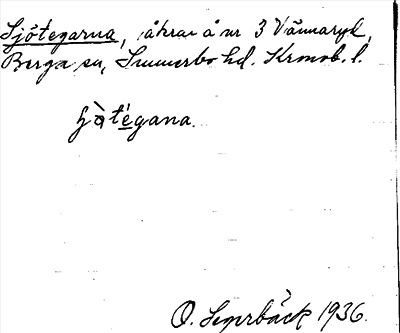 Sjötegarna, åkrar å nr 3 Vännaryd,
Berga sn, Sunnerbo hd. Kronob. l.
ʃö̀té̱gana.
O. Segerbäck 1936.